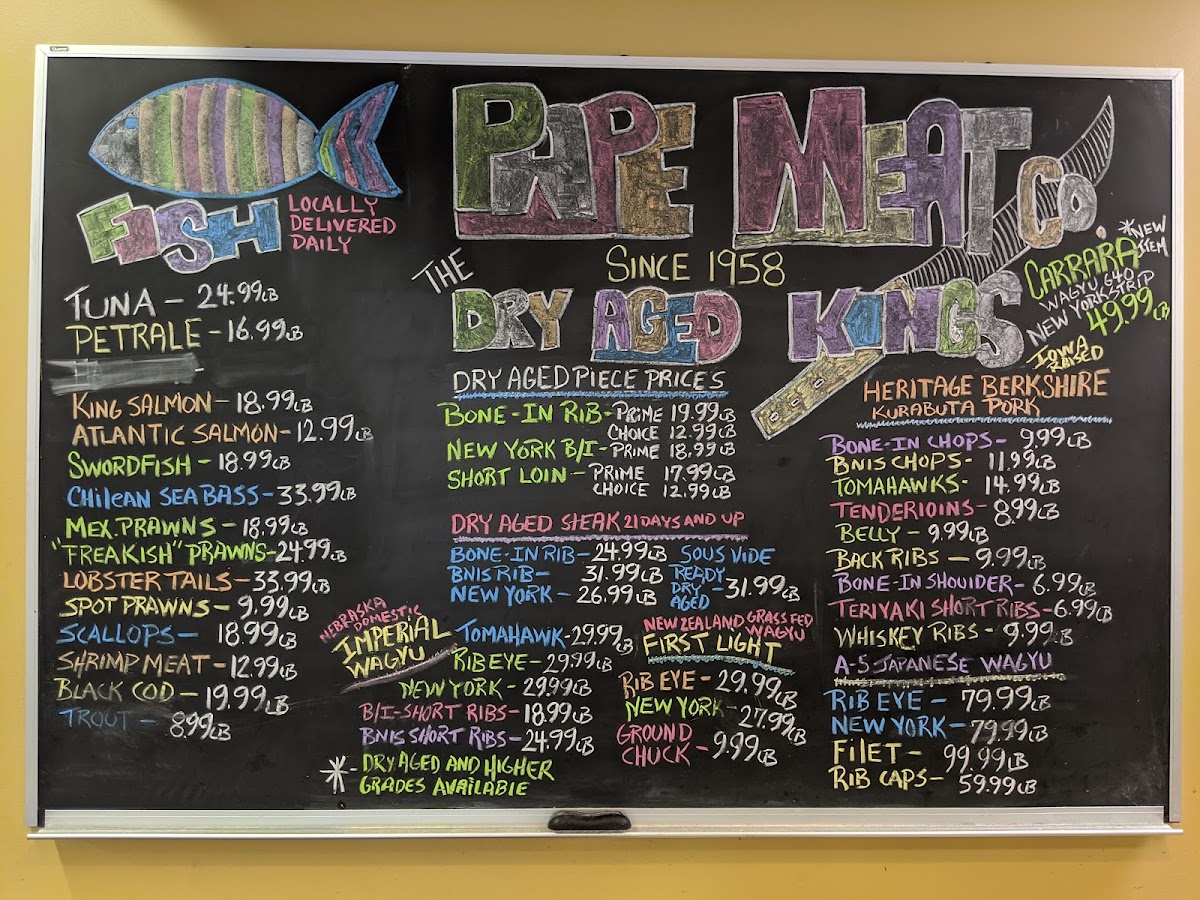 PAPE MEAT CO.
SINCE 1958
THE
DRY AGED KINGS
FISH
LOCALLY
DELIVERED
DAILY
TUNA - 24.99LB
PETRALE - 16.99LB
KING SALMON - 18.99LB
ATLANTIC SALMON - 12.99LB
SWORDFISH - 18.99LB
CHILEAN SEA BASS - 33.99LB
MEX. PRAWNS - 18.99LB
"FREAKISH" PRAWNS - 24.99LB
LOBSTER TAILS - 33.99LB
SPOT PRAWNS - 9.99LB
SCALLOPS - 18.99LB
SHRIMP MEAT - 12.99LB
BLACK COD - 19.99LB
TROUT - 8.99LB
DRY AGED PIECE PRICES
BONE-IN RIB - PRIME 19.99LB
CHOICE 12.99LB
NEW YORK B/I - PRIME 18.99LB
SHORT LOIN - PRIME 17.99LB
CHOICE 12.99LB
DRY AGED STEAK 21 DAYS AND UP
BONE-IN RIB - 24.99LB
BNLS RIB - 31.99LB
NEW YORK - 26.99LB
SOUS VIDE
READY
DRY
AGED - 31.99LB
NEBRASKA
DOMESTIC
IMPERIAL
WAGYU
TOMAHAWK - 29.99LB
RIB EYE - 29.99LB
NEW YORK - 29.99LB
B/I-SHORT RIBS - 18.99LB
BNLS SHORT RIBS - 24.99LB
* - DRY AGED AND HIGHER
GRADES AVAILABLE
NEW ZEALAND GRASS FED
WAGYU
FIRST LIGHT
RIB EYE - 29.99LB
NEW YORK - 27.99LB
GROUND
CHUCK - 9.99LB
*NEW
ITEM
CARRARA
WAGYU 640
NEW YORK STRIP
49.99LB
IOWA
RAISED
HERITAGE BERKSHIRE
KURABUTA PORK
BONE-IN CHOPS - 9.99LB
BNLS CHOPS - 11.99LB
TOMAHAWKS - 14.99LB
TENDERLOINS - 8.99LB
BELLY - 9.99LB
BACK RIBS - 9.99LB
BONE-IN SHOULDER - 6.99LB
TERIYAKI SHORT RIBS - 6.99LB
WHISKEY RIBS - 9.99LB
A-5 JAPANESE WAGYU
RIB EYE - 79.99LB
NEW YORK - 79.99LB
FILET - 99.99LB
RIB CAPS - 59.99LB